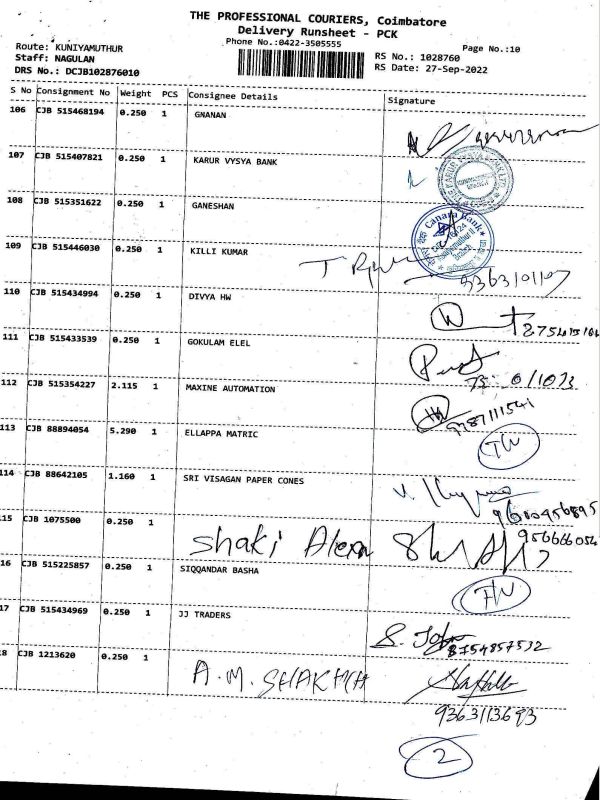 THE PROFESSIONAL COURIERS, Coimbatore
Delivery Runsheet - PCK
Phone No.:0422-3505555
Page No.:10
Route: KUNIYAMUTHUR
Staff: NAGULAN
DRS No.: DCJB102876010
RS No.: 1028760
RS Date: 27-Sep-2022
S No Consignment No Weight PCS Consignee Details Signature
106 CJB 515468194 0.250 1 GNANAN
107 CJB 515407821 0.250 1 KARUR VYSYA BANK
108 CJB 515351622 0.250 1 GANESHAN
Canara Bank
109 CJB 515446030 0.250 1 KILLI KUMAR
9363101107
110 CJB 515434994 0.250 1 DIVYA HW
111 CJB 515433539 0.250 1 GOKULAM ELEL
112 CJB 515354227 2.115 1 MAXINE AUTOMATION
9787111541
113 CJB 88894054 5.290 1 ELLAPPA MATRIC
114 CJB 88642105 1.160 1 SRI VISAGAN PAPER CONES
15 CJB 1075500 0.250 1
Shaki
16 CJB 515225857 0.250 1 SIQQANDAR BASHA
17 CJB 515434969 0.250 1 JJ TRADERS
8754857532
8 CJB 1213620 0.250 1
A.M. SHAKTHI
9363113693
2